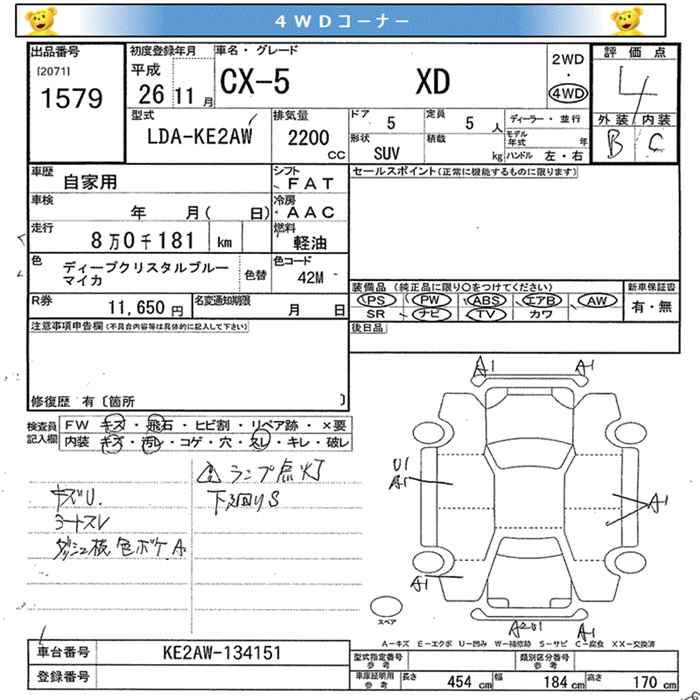 4WDコーナー
出品番号
[2071]
1579
初度登録年月
平成
26 11月
車名・グレード
CX-5 XD
2WD
・
4WD
評価点
4
外装 内装
B C
型式
LDA-KE2AW
排気量
2200
CC
ドア
5
定員
5人
ディーラー・並行
形状
SUV
積載
kg
モデル年式
年
ハンドル 左・右
車歴
自家用
シフト
FAT
車検
年 月( 日)
冷房
AAC
走行
8万0千181 km
燃料
軽油
色
ディープクリスタルブルー
マイカ
色替
色コード
42M
R券
11,650円
名変通知期限
月 日
セールスポイント(正常に機能するものに限ります)
装備品 (純正品に限り○をつけてください)
PS PW ABS エアB AW
SR ナビ TV カワ
新車保証書
有・無
後日品
注意事項申告欄(不具合内容等は具体的に記入して下さい)
修復歴 有〔箇所 〕
検査員
記入欄
FW キズ・飛石・ヒビ割・リペア跡・×要
内装 キズ・汚レ・コゲ・穴・スレ・キレ・破レ
キズU.
シートスレ
ダッシュ板 色ボケ.A
ランプ点灯
下廻りS
A1 A1
U1
A1
A1
A1
A2U1 A1
スペア
A-キズ E-エクボ U-凹み W-補修跡 S-サビ C-腐食 XX-交換済
車台番号
KE2AW-134151
登録番号
型式指定番号
参考
類別区分番号
参考
車庫証明用
参考
長さ 454 cm
幅 184 cm
高さ 170 cm